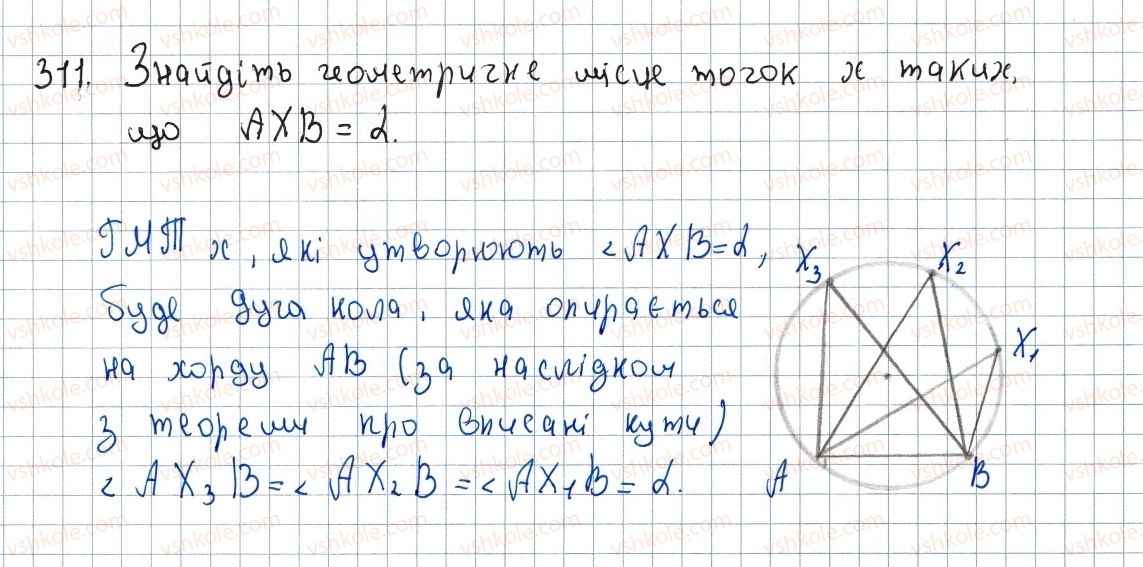 311. Знайдіть геометричне місце точок x таких,
що AXB = α.
ГМТ x, які утворюють ∠AXB=α,
буде дуга кола, яка опирається
на хорду AB (за наслідком
з теореми про вписані кути)
∠AX₃B=∠AX₂B=∠AX₁B=α.
X₃ X₂
X₁
A B